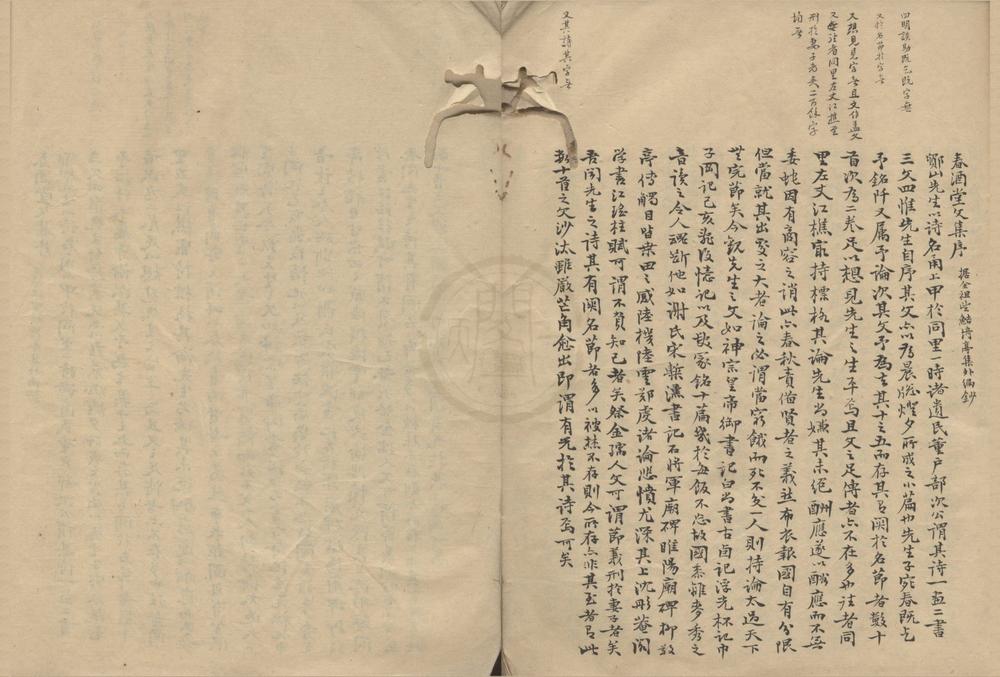 四明叢書既乞既字無
又於名節於字無
又想見見字無且文作蓋文
又無往者同里左丈江樵至
刑於妻子者矣二百餘字
均無
又其詩其字無
春酒堂文集序 據全祖望鮚埼亭集外編鈔
鄮山先生以詩名甬上甲於同里一時諸遺民董户部次公謂其詩一画二書
三文四惟先生自序其文亦以為晨牕燿夕所成之小篇也先生子宛春既乞
予銘阡又属予論次其文予為去其十之五而存其有関於名節者數十
首次為二卷足以想見先生之生平焉且文之足傳者亦不在多也往者同
里左丈江樵最持標格其論先生尚嫌其未絕酬應遂以酬應而不無
委蛇因有商容之誚此亦春秋責備賢者之義然布衣報國自有分限
但當就其出處之大者論之必謂當窮餓而死不交一人則持論太過天下
無完節矣今觀先生之文如神宗皇帝御書記白尚書古卣記浮光杯記巾
子岡記己亥難後憶記以及髮冢銘十篇幾於每飯不忘故國黍離麥秀之
音讀之令人魂斷他如謝氏宋槧漢書記石將軍廟碑睢陽廟碑柳敬
亭傳觸目皆桑田之感陸機陸雲鄭虔諸論悲憤尤深其上沈彤菴閣
學書江瑤柱賦可謂不負知己者矣祭金孺人文可謂節義刑於妻子者矣
吾聞先生之詩其有関名節者多以被禁不存則今所存亦非其至者耳此
數十首之文沙汰雖嚴芒角愈出即謂有光於其詩焉可矣